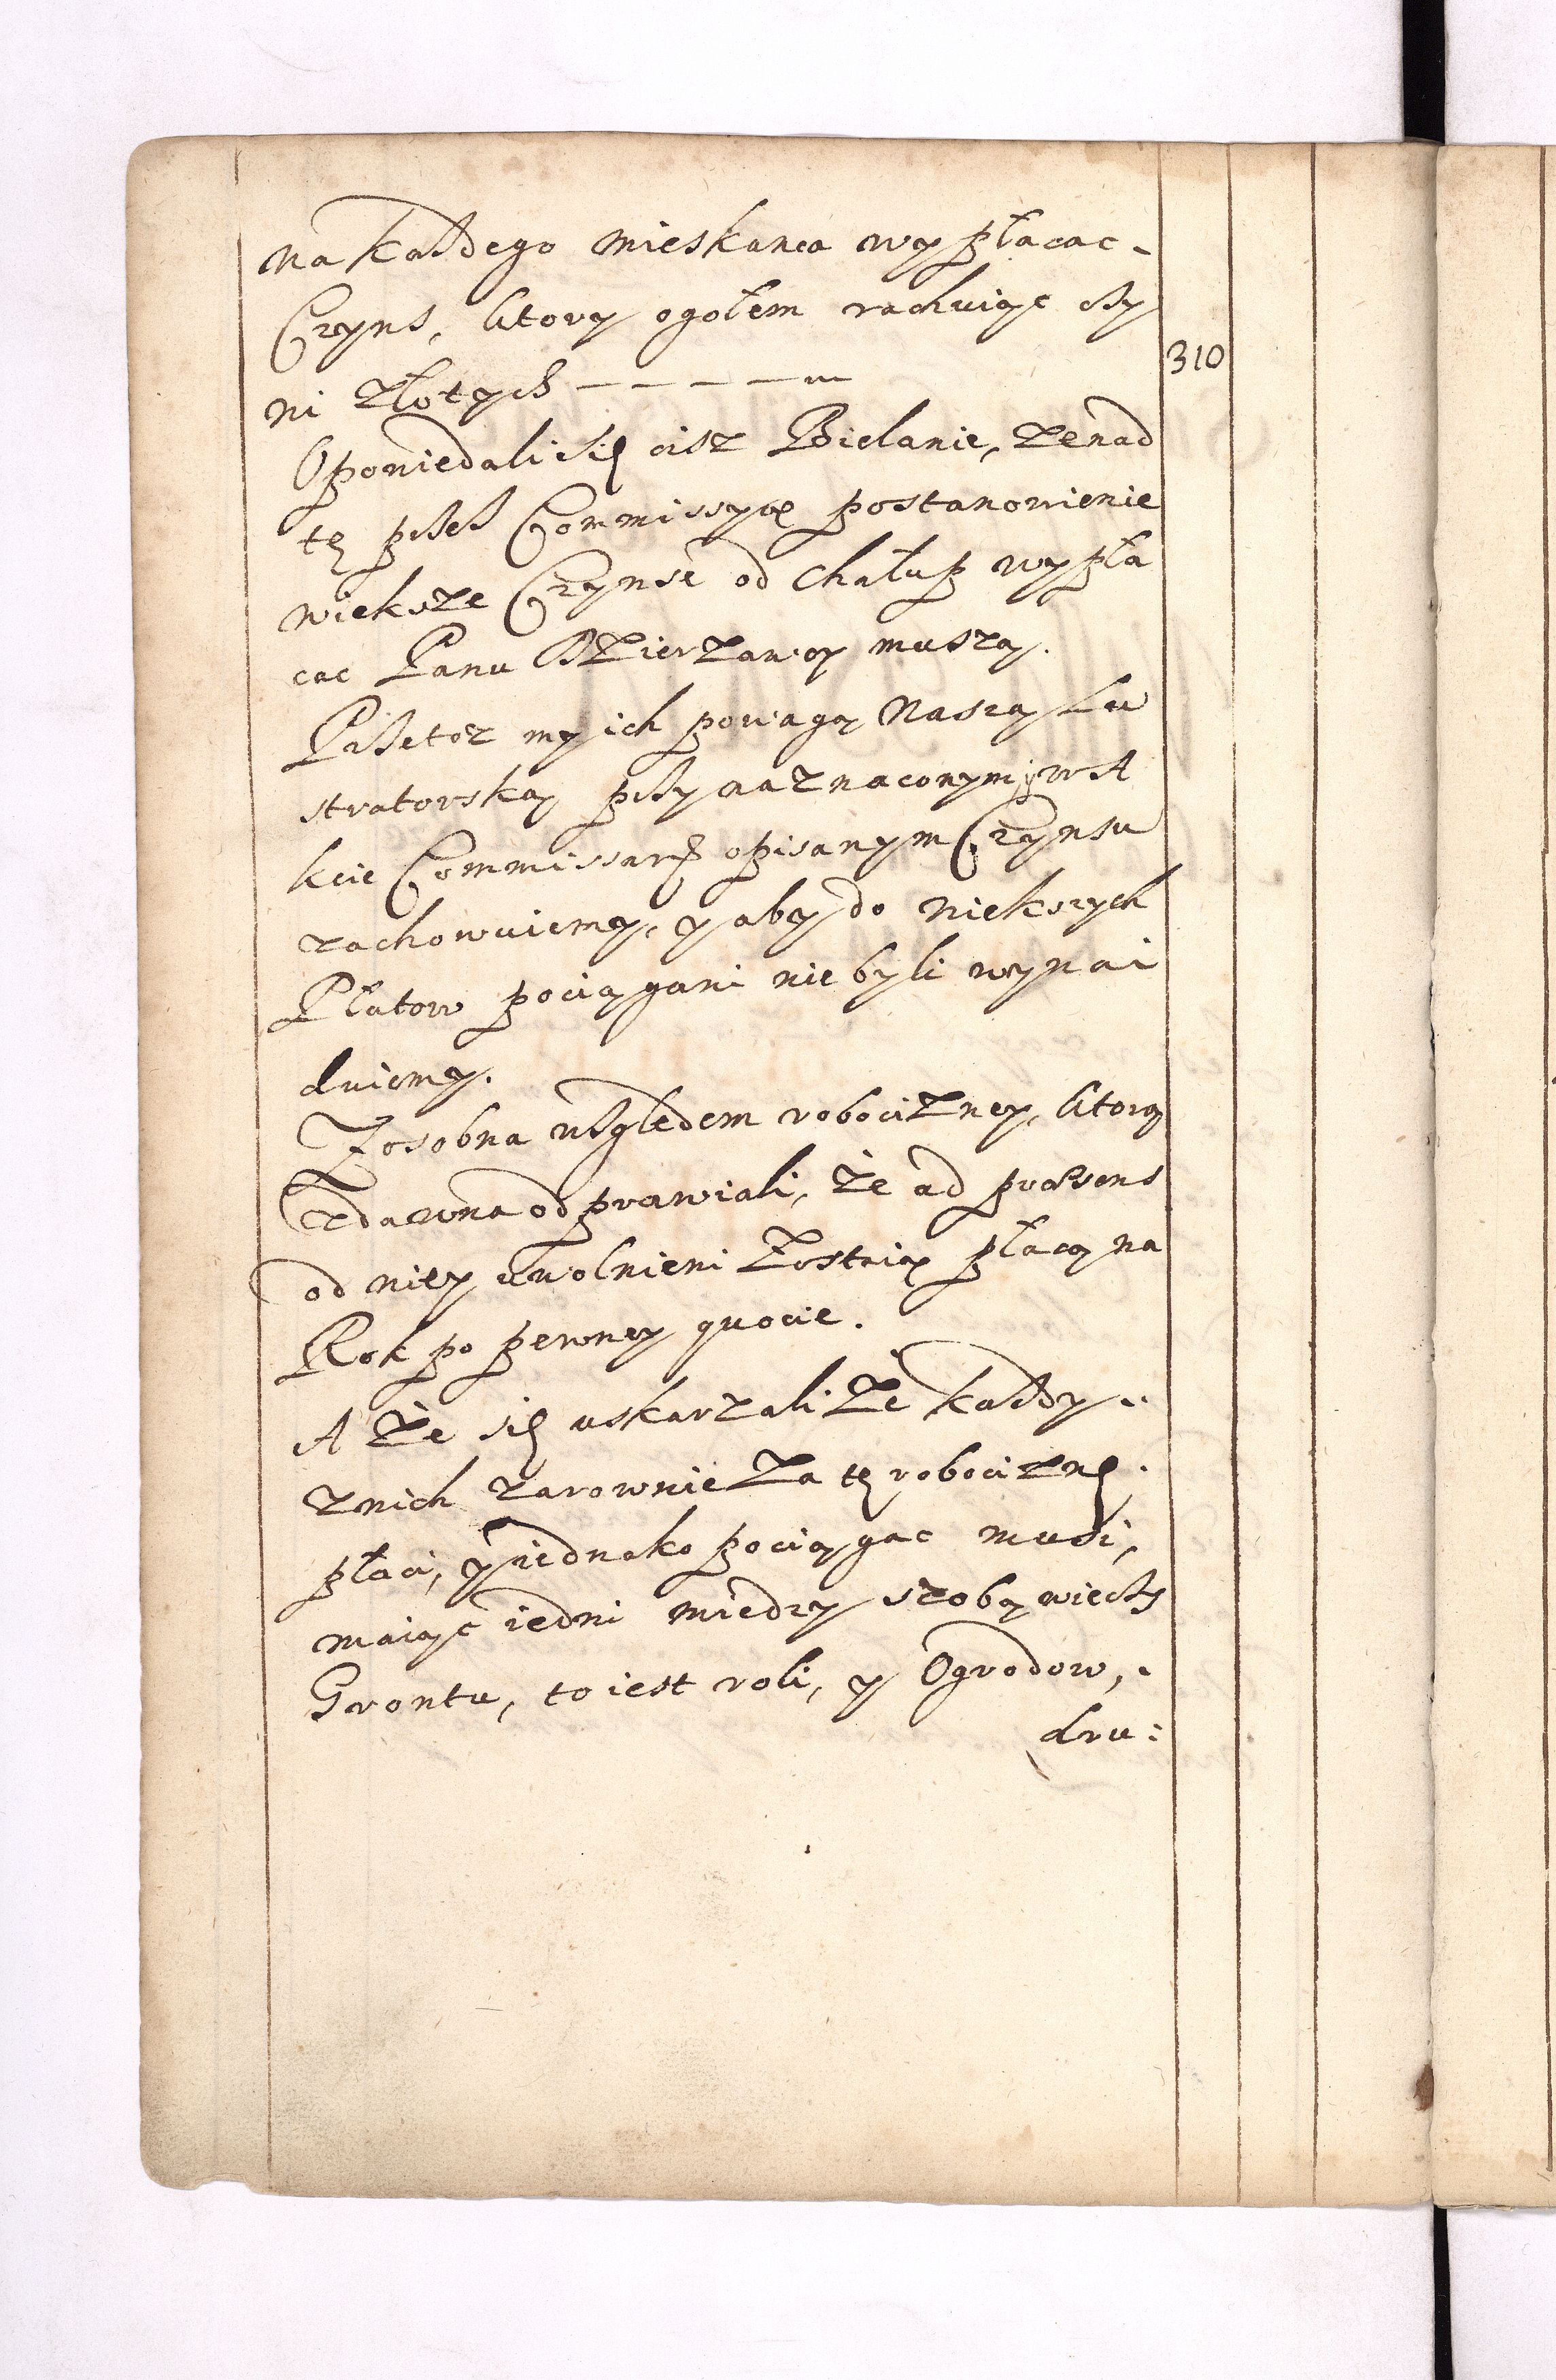 na kazdego mieskanca wypłacac
Czyns, ktory ogołem rachuiąc czy
ni złotych - - - - - 310
Opowiedali się cisz Bielanie, ze nad
tę przez Commissyą postanowienie
wieksze Czynse od Chałup wypła
cac Panu Dzierzawcy muszą.
Przetoz my ich powagą Naszą Lu
stratorską przy naznaconym, w A
kcie Commissarş opisanym Czynsu
zachowuiemy, y aby do wiekszych
Płatow pociągani nie byli wynai
duiemy.
Zosobna względem robocizney, ktorą
zdawna odprawiali, że ad præsens
od niey uwolnieni zostaią płacą na
Rok po pewney quocie.
A że się uskarzali że kazdy
znich zarownie za tę robociznę
płaci, y iednako pociągac musi,
maiąc iedni miedzy szobą wieczy
Grontu, to iest roli, y Ogrodow,
dru: